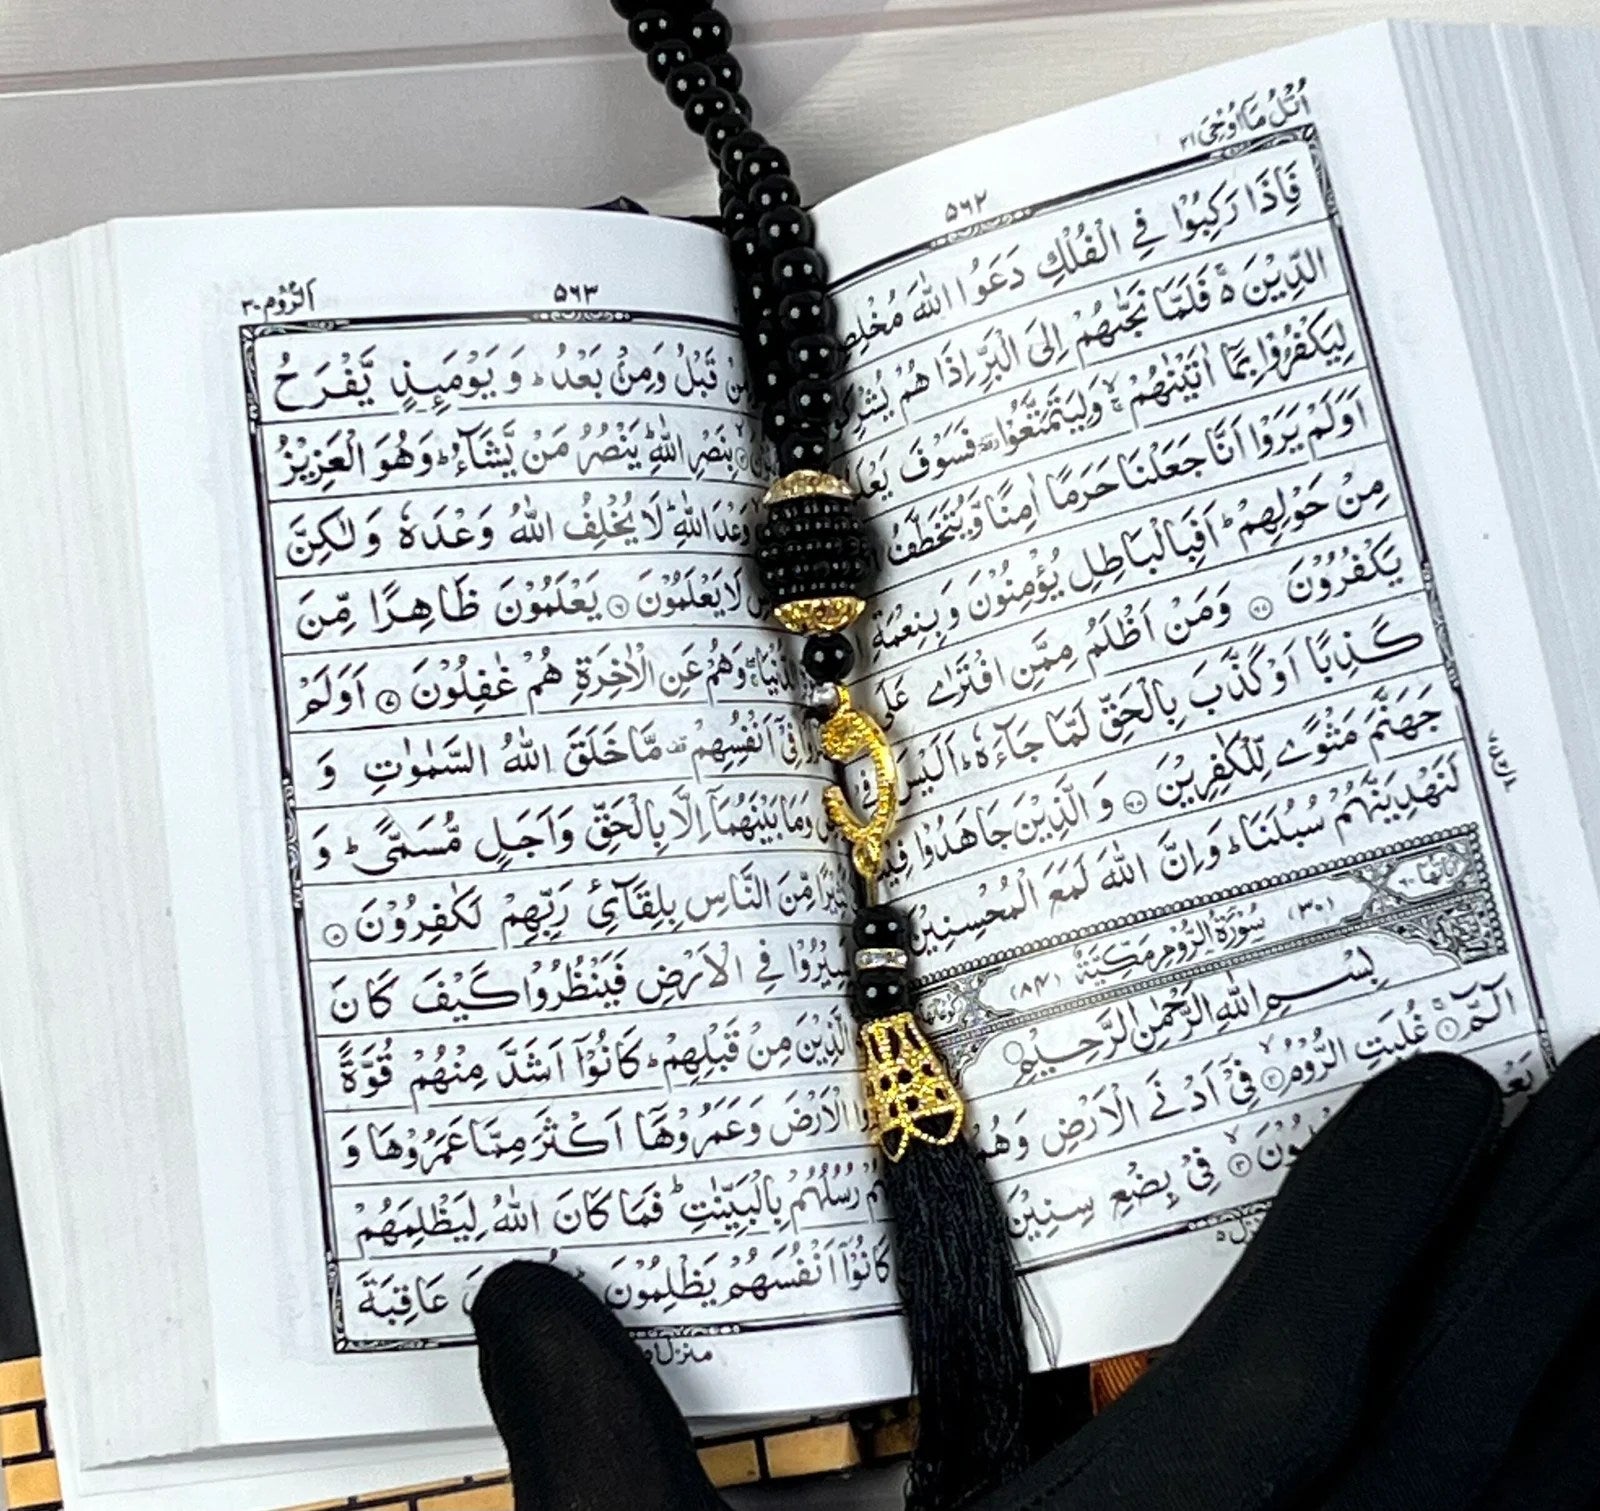 اُتْلُ مَآ اُوْحِیَ ۲۱
۵۶۲
فَاِذَا رَكِبُوْا فِي الْفُلْكِ دَعَوُا اللّٰهَ
الدِّيْنَ ۚ۬ فَلَمَّا نَجّٰىهُمْ اِلَى الْبَرِّ اِذَا هُمْ
لِيَكْفُرُوْا بِمَآ اٰتَيْنٰهُمْ ۙۚ وَلِيَتَمَتَّعُوْا ۥ فَسَوْفَ
اَوَلَمْ يَرَوْا اَنَّا جَعَلْنَا حَرَمًا اٰمِنًا وَّيُتَخَطَّفُ
مِنْ حَوْلِهِمْ ؕ اَفَبِالْبَاطِلِ يُؤْمِنُوْنَ وَبِنِعْمَةِ
يَكْفُرُوْنَ وَمَنْ اَظْلَمُ مِمَّنِ افْتَرٰى
كَذِبًا اَوْ كَذَّبَ بِالْحَقِّ لَمَّا جَآءَهٗ ؕ اَلَيْسَ
جَهَنَّمَ مَثْوًى لِّلْكٰفِرِيْنَ وَالَّذِيْنَ جَاهَدُوْا
لَنَهْدِيَنَّهُمْ سُبُلَنَا ؕ وَاِنَّ اللّٰهَ لَمَعَ الْمُحْسِنِيْنَ
(۳۰) سُوْرَةُ الرُّوْمِ مَكِّيَّةٌ (۸۴)
بِسْمِ اللّٰهِ الرَّحْمٰنِ الرَّحِيْمِ
الٓمّٓ ۚ ۱ غُلِبَتِ الرُّوْمُ ۙ ۲ فِيْٓ اَدْنَى الْاَرْضِ
۳ فِيْ بِضْعِ سِنِيْنَ
اَلرُّوْم ۳۰
۵۶۳
قَبْلُ وَمِنْۢ بَعْدُ ؕ وَيَوْمَئِذٍ يَّفْرَحُ
بِنَصْرِ اللّٰهِ ؕ يَنْصُرُ مَنْ يَّشَآءُ ؕ وَهُوَ الْعَزِيْزُ
وَعْدَ اللّٰهِ ؕ لَا يُخْلِفُ اللّٰهُ وَعْدَهٗ وَلٰكِنَّ
لَا يَعْلَمُوْنَ ۶ يَعْلَمُوْنَ ظَاهِرًا مِّنَ
وَهُمْ عَنِ الْاٰخِرَةِ هُمْ غٰفِلُوْنَ ۷ اَوَلَمْ
فِيْٓ اَنْفُسِهِمْ مَا خَلَقَ اللّٰهُ السَّمٰوٰتِ وَ
وَمَا بَيْنَهُمَآ اِلَّا بِالْحَقِّ وَاَجَلٍ مُّسَمًّى ؕ وَ
مِّنَ النَّاسِ بِلِقَآئِ رَبِّهِمْ لَكٰفِرُوْنَ ۸
فِي الْاَرْضِ فَيَنْظُرُوْا كَيْفَ كَانَ
الَّذِيْنَ مِنْ قَبْلِهِمْ ؕ كَانُوْٓا اَشَدَّ مِنْهُمْ قُوَّةً
الْاَرْضَ وَعَمَرُوْهَآ اَكْثَرَ مِمَّا عَمَرُوْهَا وَ
رُسُلُهُمْ بِالْبَيِّنٰتِ ؕ فَمَا كَانَ اللّٰهُ لِيَظْلِمَهُمْ
كَانُوْٓا اَنْفُسَهُمْ يَظْلِمُوْنَ عَاقِبَةَ
منزل ۵